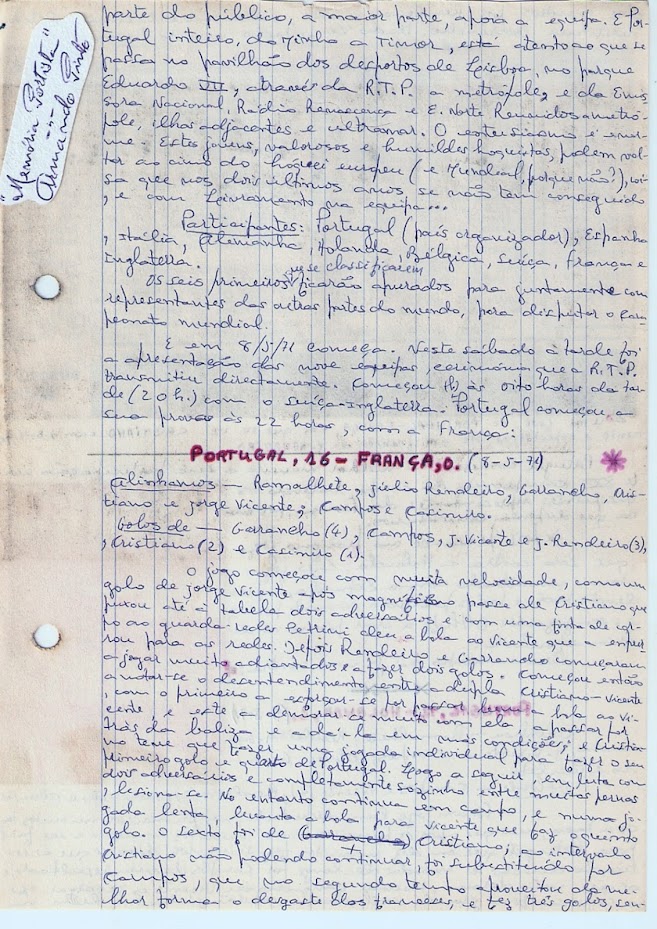 "Memória Portista"
---
Armando Pinto
parte do público, a maior parte, apoia a equipa. E Por-
tugal inteiro, do Minho a Timor, está atento ao que se
passa no pavilhão dos desportos de Lisboa, no parque
Eduardo VII, através da R.T.P. a metrópole, e da Emis
sora Nacional, Rádio Renascença e E. Norte Reunidos a metró
pole, ilhas adjacentes e ultramar. O entusiasmo é enor-
me. Estes jovens, valorosos e humildes hoquistas, podem vol-
tar ao cimo do hóquei europeu (e Mundial, porque não?), coi-
sa que nos dois últimos anos se não tem conseguido
, e com Livramento na equipa...
Participantes: Portugal (país organizador), Espanha
, Itália, Alemanha, Holanda, Bélgica, Suíça, França e
Inglaterra.
Os seis primeiros que se classificarem ficarão apurados para juntamente com
representantes das outras partes do mundo, para disputar o Cam-
peonato mundial.
E em 8/5/71 começa. Neste sábado à tarde foi
a apresentação das nove equipas, cerimónia que a R.T.P.
transmitiu directamente. Começou às oito horas da tar-
de (20 h.) com o Suíça-Inglaterra. Portugal começou a
sua prova às 22 horas, com a França:
PORTUGAL, 16 - FRANÇA, 0. (8-5-71)
Alinhamos - Ramalhete, Júlio Rendeiro, Garrancho, Cris-
tiano e Jorge Vicente; Campos e Casimiro.
Golos de - Garrancho (4), Campos, J. Vicente e J. Rendeiro (3),
, Cristiano (2) e Casimiro (1).
O jogo começou com muita velocidade, com um
golo de Jorge Vicente após magnífico passe de Cristiano que
puxou até à tabela dois adversários e com uma finta de cor-
po ao guarda-redes deu a bola ao Vicente que a empur
rou para as redes. Depois Rendeiro e Garrancho começaram
a jogar muito adiantados e a fazer dois golos. Começou então
a notar-se o desentendimento entre a dupla Cristiano-Vicente
, com o primeiro a esforçar-se por passar a bola ao Vi-
cente, e este a demorar-se muito com ela a passar por
trás da baliza e a dá-la em más condições; e Cristia-
no teve que fazer uma jogada individual para fazer o seu
primeiro golo e quarto de Portugal. Logo a seguir, em luta com
dois adversários e completamente sozinho entre muitas pernas
, lesiona-se. No entanto continua em campo, e numa jo-
gada lenta, levanta a bola para Vicente que faz o quinto
golo. O sexto foi de Cristiano; ao intervalo
Cristiano não podendo continuar, foi substituído por
Campos, que no segundo tempo aproveitou da me-
lhor forma o desgaste dos franceses, e fez três golos, sen-